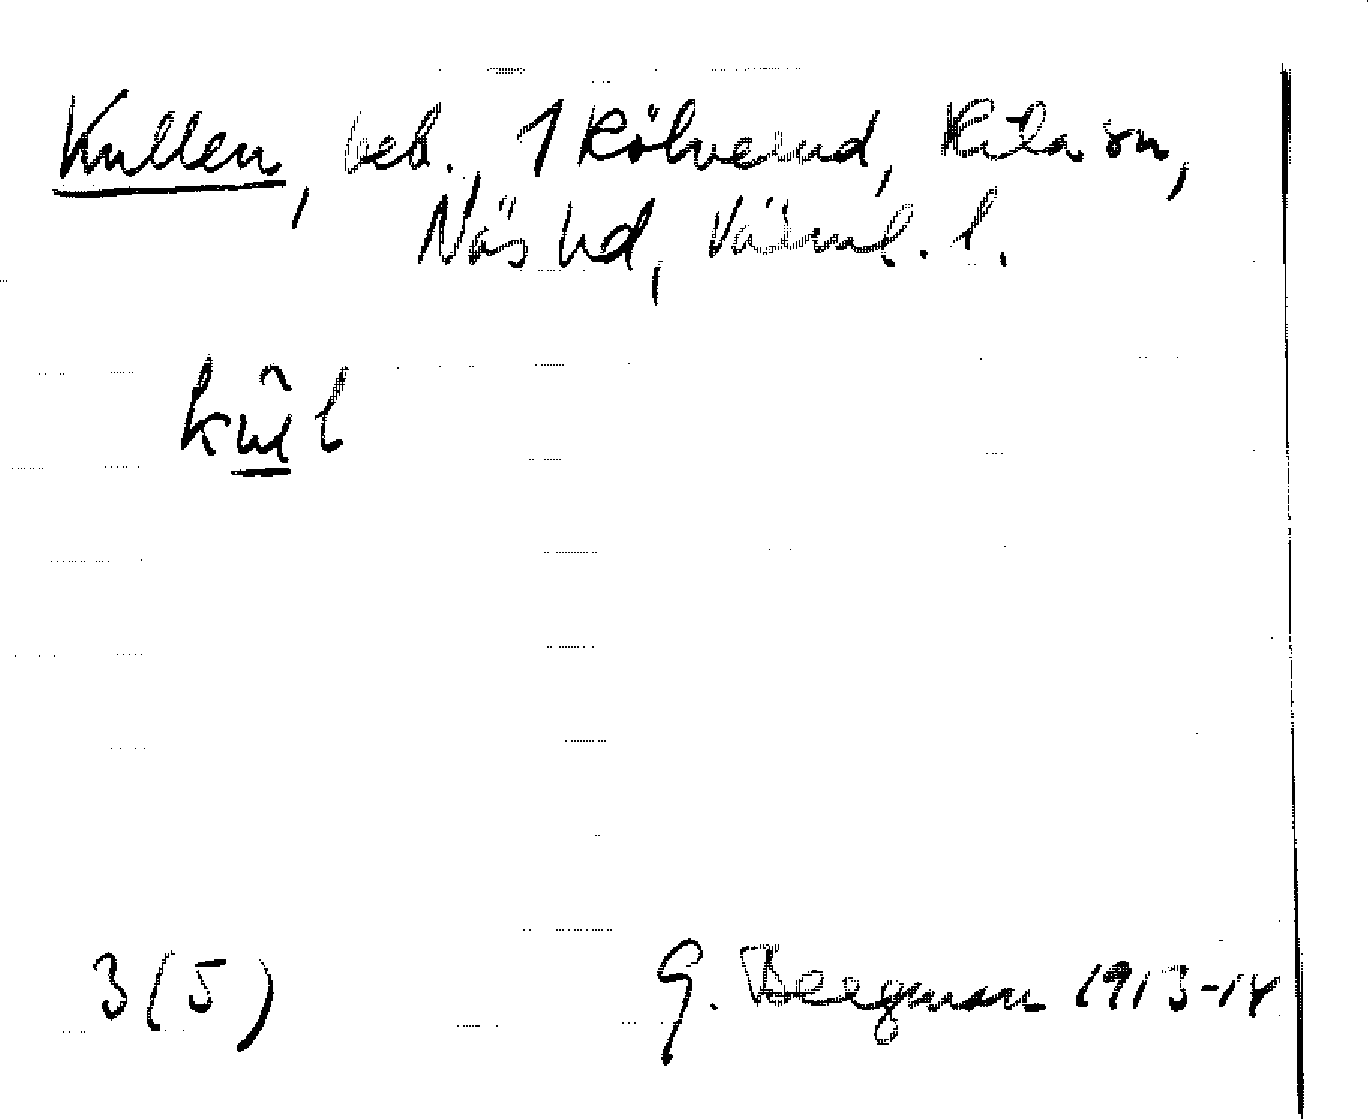 Kullen, beb. 1 Rölverud, Kila sn,
Näs hd, Värml. l.
kûl
3 (5) G. Bergman 1913-14